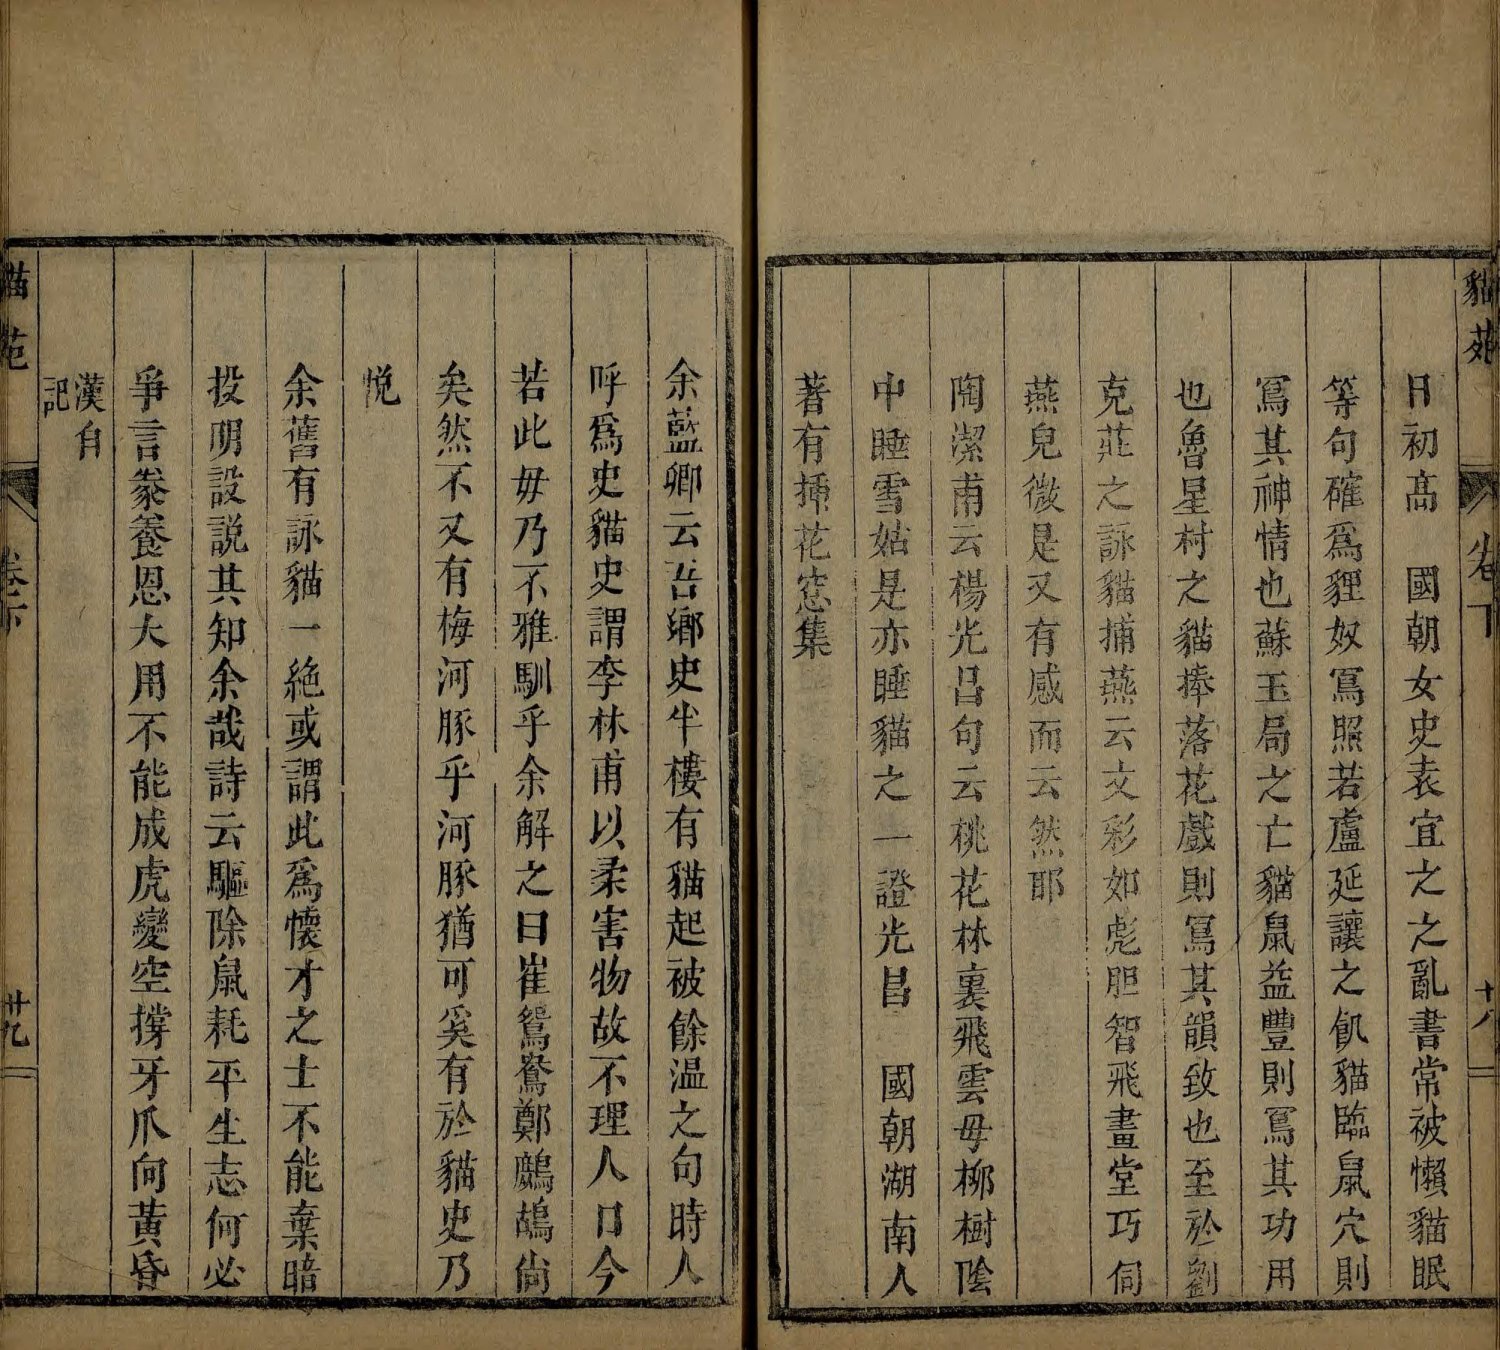 貓苑
卷下
十八
日初高　國朝女史袁宜之之亂書常被懶貓眠
等句確爲貍奴寫照若盧延讓之飢貓臨鼠穴則
寫其神情也蘇玉局之亡貓鼠益豐則寫其功用
也魯星村之貓捧落花戲則寫其韻致也至於劉
克莊之詠貓捕燕云文彩如彪胆智飛畫堂巧伺
燕兒微是又有感而云然耶
陶潔甫云楊光昌句云桃花林裏飛雲毋柳樹陰
中睡雪姑是亦睡貓之一證光昌　國朝湖南人
著有揷花窓集
余藍卿云吾鄉史半樓有貓起被餘温之句時人
呼爲史貓史謂李林甫以柔害物故不理人口今
若此毋乃不雅馴乎余解之曰崔鴛鴦鄭鷓鴣尙
矣然不又有梅河豚乎河豚猶可奚有於貓史乃
悅
余舊有詠貓一絶或謂此爲懷才之士不能棄暗
投明設説其知余哉詩云驅除鼠耗平生志何必
爭言豢養恩大用不能成虎變空撐牙爪向黃昏
漢自
記
貓苑
卷下
廿九